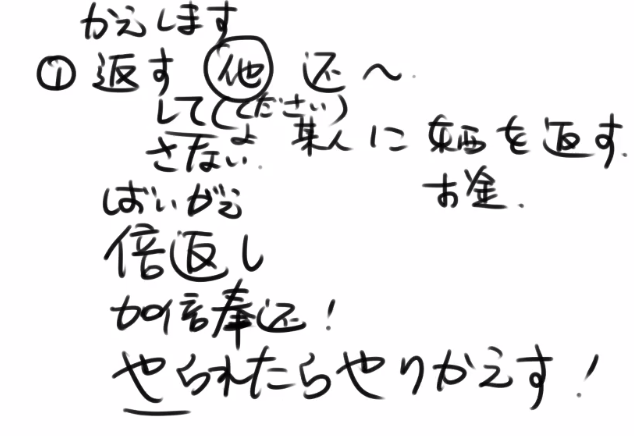 かえします
① 返す 他 还～
して(ください)
さない。よ 某人 に 东西 を 返す。
お金.
ばいがえ
倍返し
加倍奉还！
やられたらやりかえす！